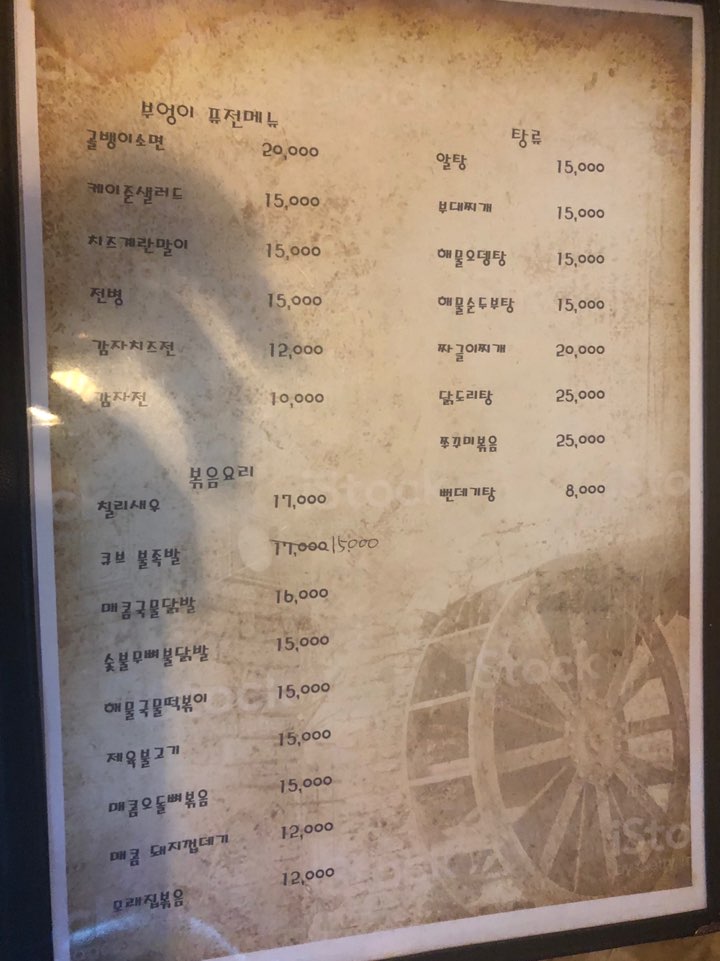 부엉이 퓨전메뉴
골뱅이소면 20,000
케이준샐러드 15,000
치즈계란말이 15,000
전병 15,000
감자치즈전 12,000
감자전 10,000
볶음요리
칠리새우 17,000
큐브 불족발 17,000 15000
매콤국물닭발 16,000
숯불무뼈불닭발 15,000
해물국물떡볶이 15,000
제육불고기 15,000
매콤오돌뼈볶음 15,000
매콤 돼지껍데기 12,000
모래집볶음 12,000
탕류
알탕 15,000
부대찌개 15,000
해물오뎅탕 15,000
해물순두부탕 15,000
짜글이찌개 20,000
닭도리탕 25,000
쭈꾸미볶음 25,000
뻔데기탕 8,000
iStock
iStock